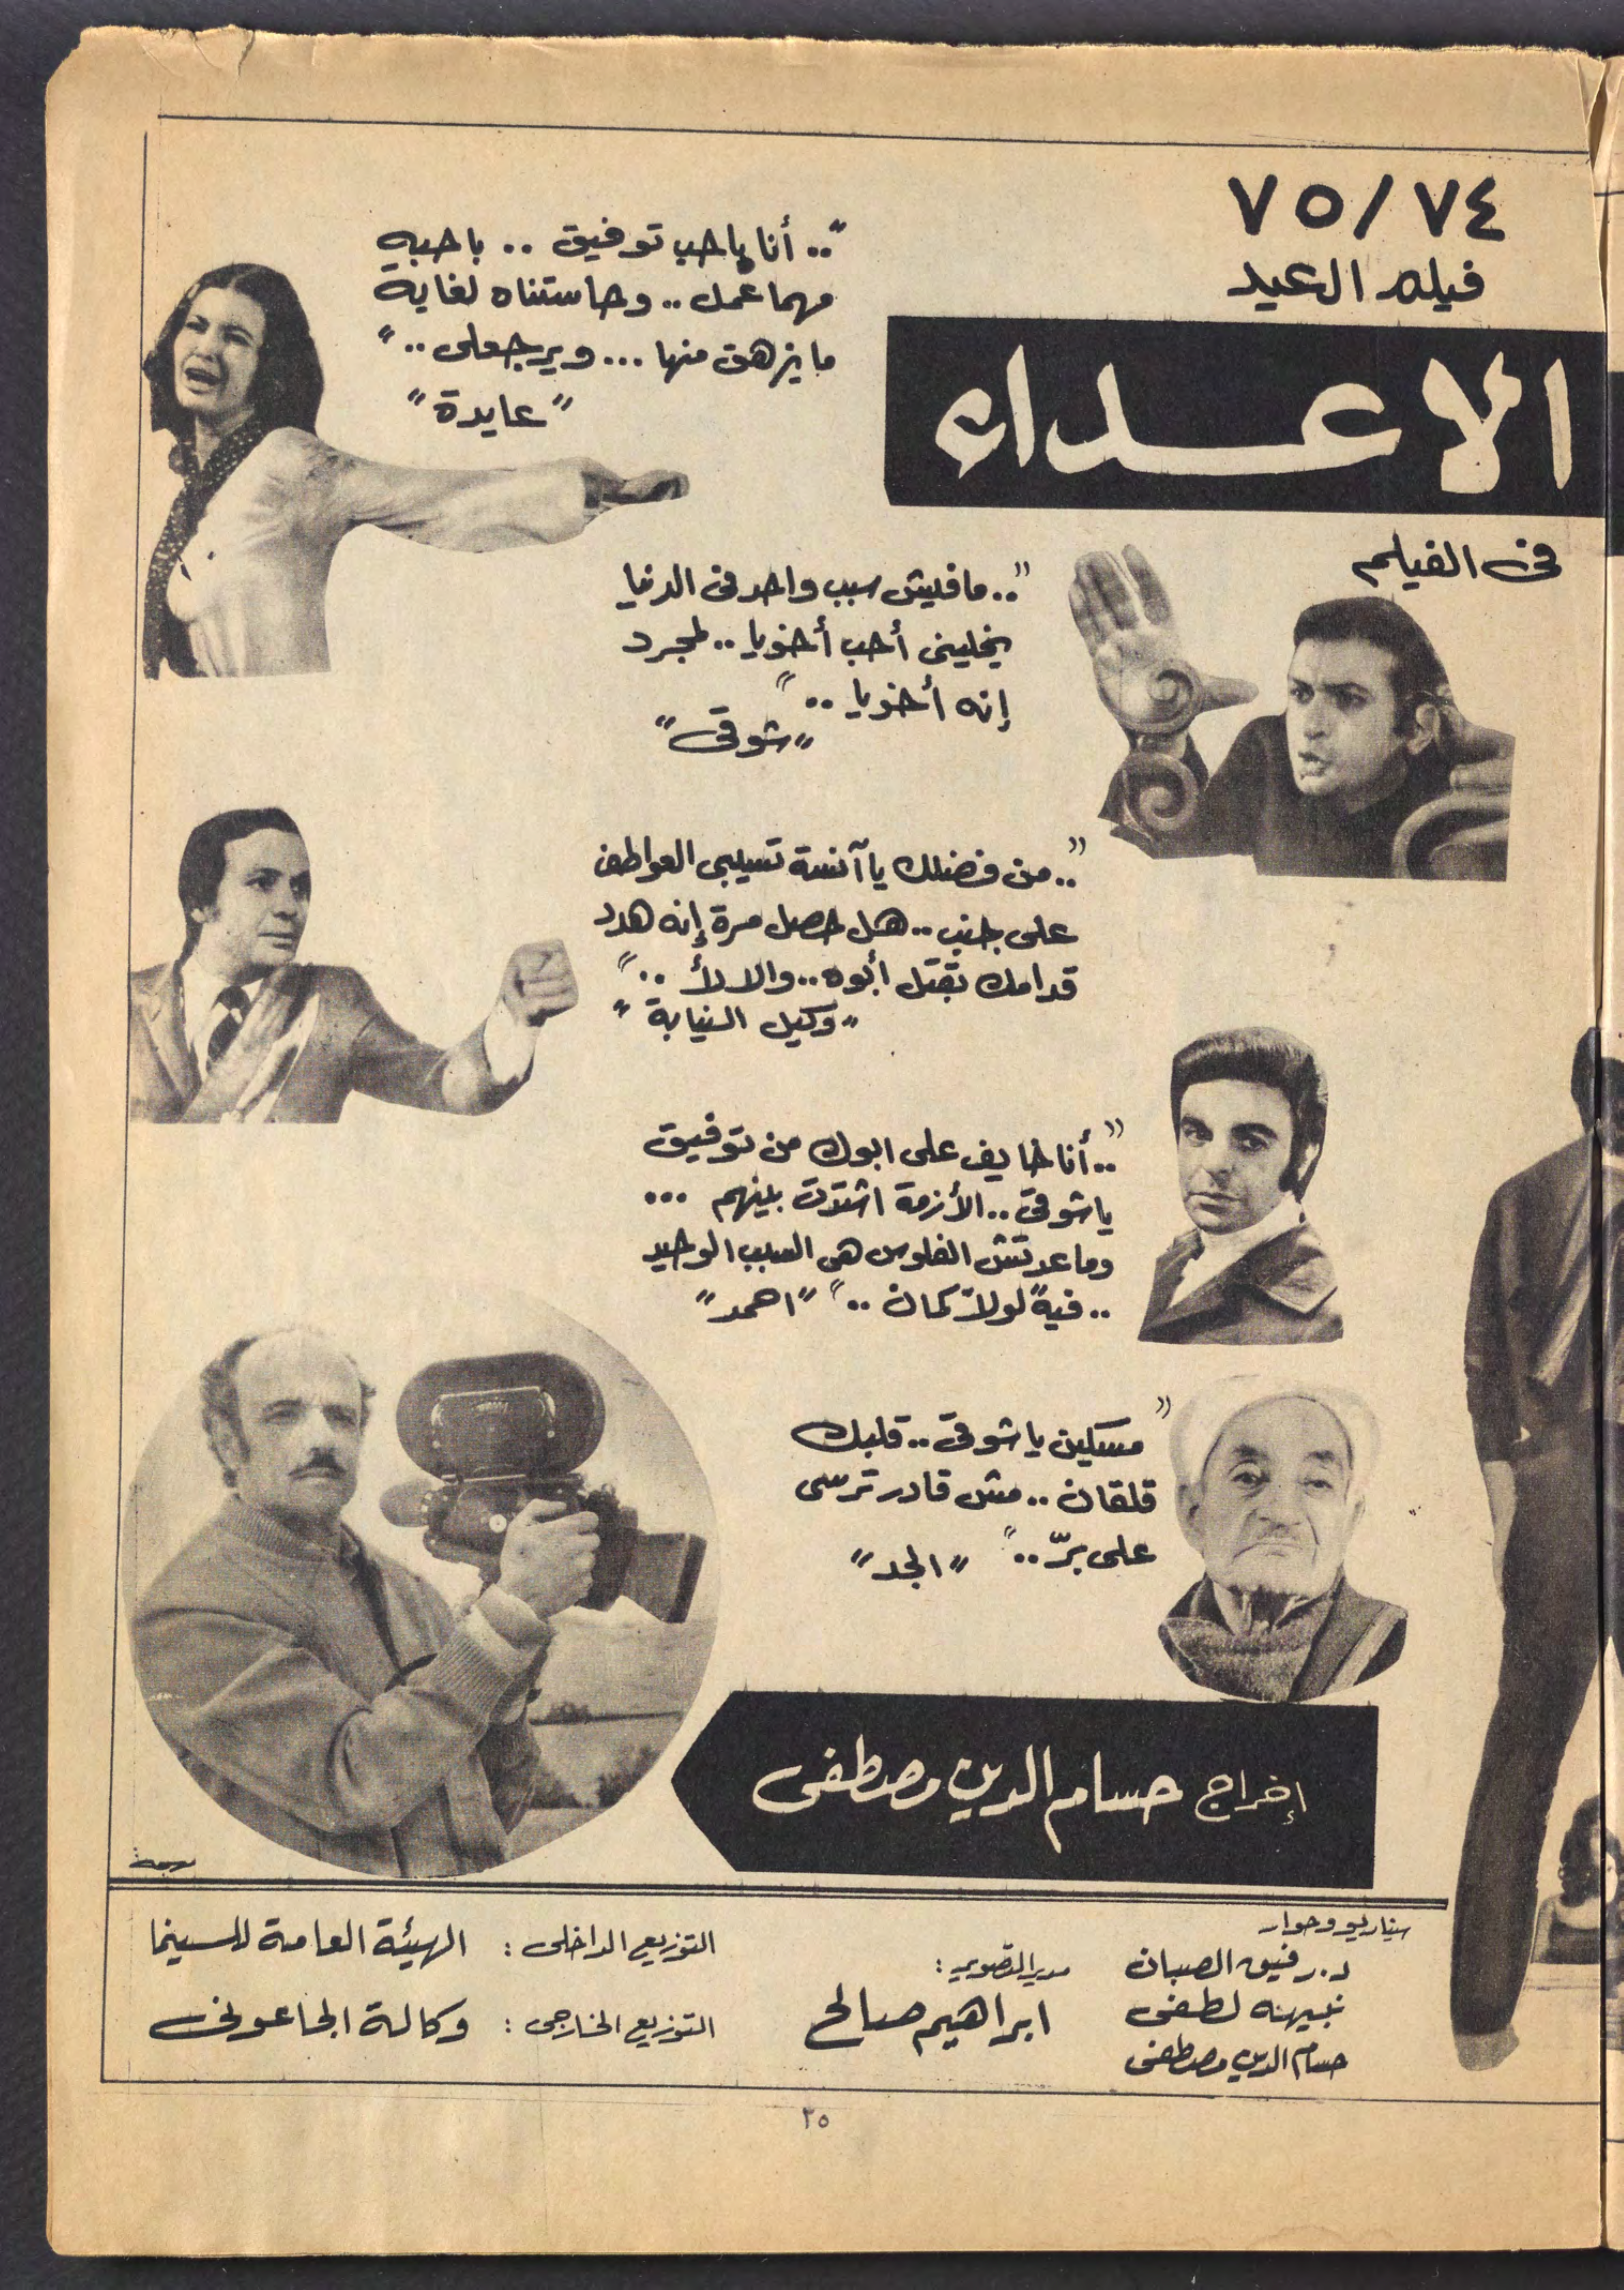 ٧٥/٧٤
فيلم العيد
الاعداء
فى الفيلم
".. أنا باحب توفيق .. باحبه
مهما عمل .. وحاستناه لغاية
ما يزهق منها ... ويرجعلى .."
"عايدة"
".. مافيش سبب واحد فى الدنيا
يخلينى أحب أخويا .. لمجرد
إنه أخويا .."
"شوقى"
".. من فضلك يا آنسة تسيبى العواطف
على جنب .. هل حصل مرة إنه هدد
قدامك بقتل أبوه .. والا لأ .."
"وكيل النيابة"
".. أنا خايف على ابوك من توفيق
يا شوقى .. الأزمة اشتدت بينهم ...
وما عدتش الفلوس هى السبب الوحيد
.. فيه "لولا" كمان .." "احمد"
"مسكين يا شوقى .. قلبك
قلقان .. مش قادر ترسى
على برّ .." "الجد"
إخراج حسام الدين مصطفى
سيناريو وحوار
د. رفيق الصبان
نبيهه لطفى
حسام الدين مصطفى
مدير التصوير :
ابراهيم صالح
التوزيع الداخلى : الهيئة العامة للسينما
التوزيع الخارجى : وكالة الجاعونى
٢٥